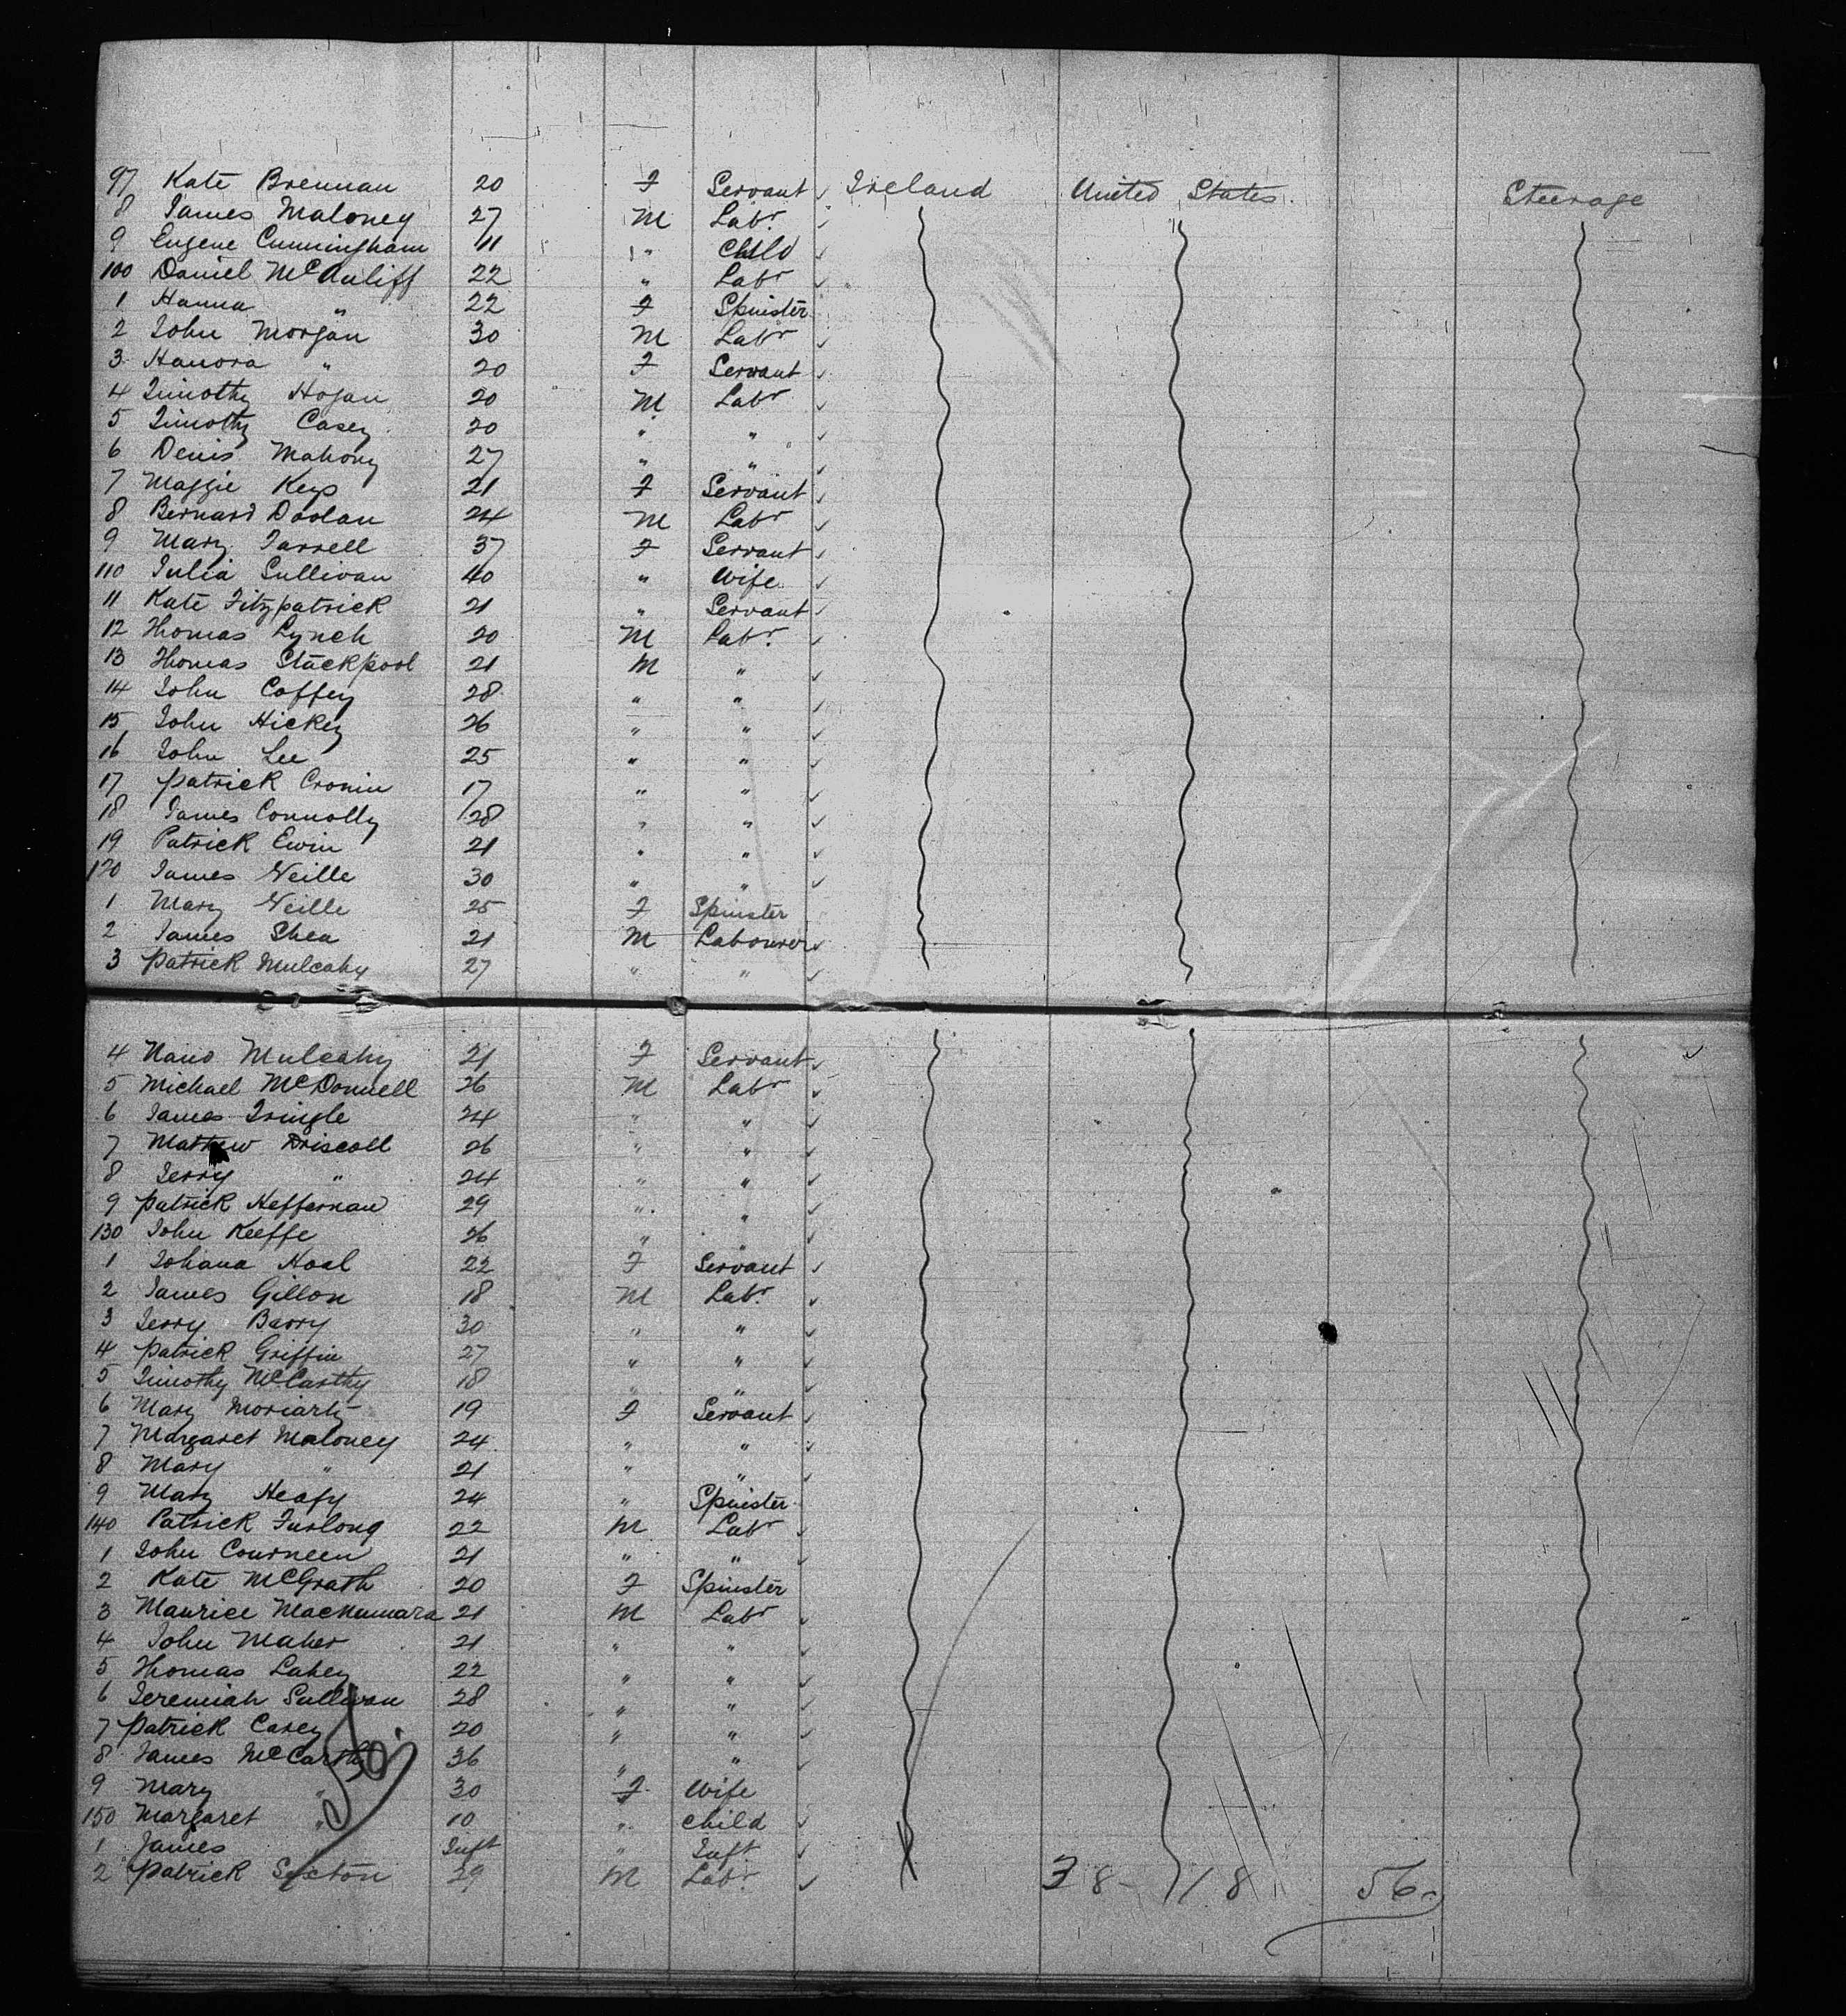 97 Kate Brennan 20 F Servant Ireland United States Steerage
8 James Maloney 27 M Labr
9 Eugene Cunningham 11 " Child
100 Daniel McAuliff 22 " Labr
1 Hanna " 22 F Spinster
2 John Morgan 30 M Labr
3 Hanora " 20 F Servant
4 Timothy Hogan 20 M Labr
5 Timothy Casey 20 " "
6 Denis Mahony 27 " "
7 Maggie Keys 21 F Servant
8 Bernard Doolan 24 M Labr
9 Mary Farrell 37 F Servant
110 Julia Sullivan 40 " Wife
11 Kate Fitzpatrick 21 " Servant
12 Thomas Lynch 20 M Labr
13 Thomas Stackpool 21 M "
14 John Coffey 28 " "
15 John Hickey 26 " "
16 John Lee 25 " "
17 Patrick Cronin 17 " "
18 James Connolly 28 " "
19 Patrick Ewin 21 " "
120 James Neille 30 " "
1 Mary Neille 25 F Spinster
2 James Shea 21 M Labourer
3 Patrick Mulcahy 27 " "
4 Nano Mulcahy 21 F Servant
5 Michael McDonnell 26 M Labr
6 James Tringle 24 " "
7 Mathew Driscoll 26 " "
8 Jerry " 24 " "
9 Patrick Heffernan 29 " "
130 John Keeffe 26 " "
1 Johana Hoal 22 F Servant
2 James Gillon 18 M Labr
3 Jerry Barry 30 " "
4 Patrick Griffin 27 " "
5 Timothy McCarthy 18 " "
6 Mary Moriarty 19 F Servant
7 Margaret Maloney 24 " "
8 Mary " 21 " "
9 Mary Heafy 24 " Spinster
140 Patrick Furlong 22 M Labr
1 John Courneen 21 " "
2 Kate McGrath 20 F Spinster
3 Maurice Macnumara 21 M Labr
4 John Maher 21 " "
5 Thomas Lahey 22 " "
6 Jeremiah Sullivan 28 " "
7 Patrick Casey 20 " "
8 James McCarthy 36 " "
9 Mary " 30 F Wife
150 Margaret " 10 " Child
1 James Inft " Inft
2 Patrick Sexton 29 M Labr
38 - 18 56